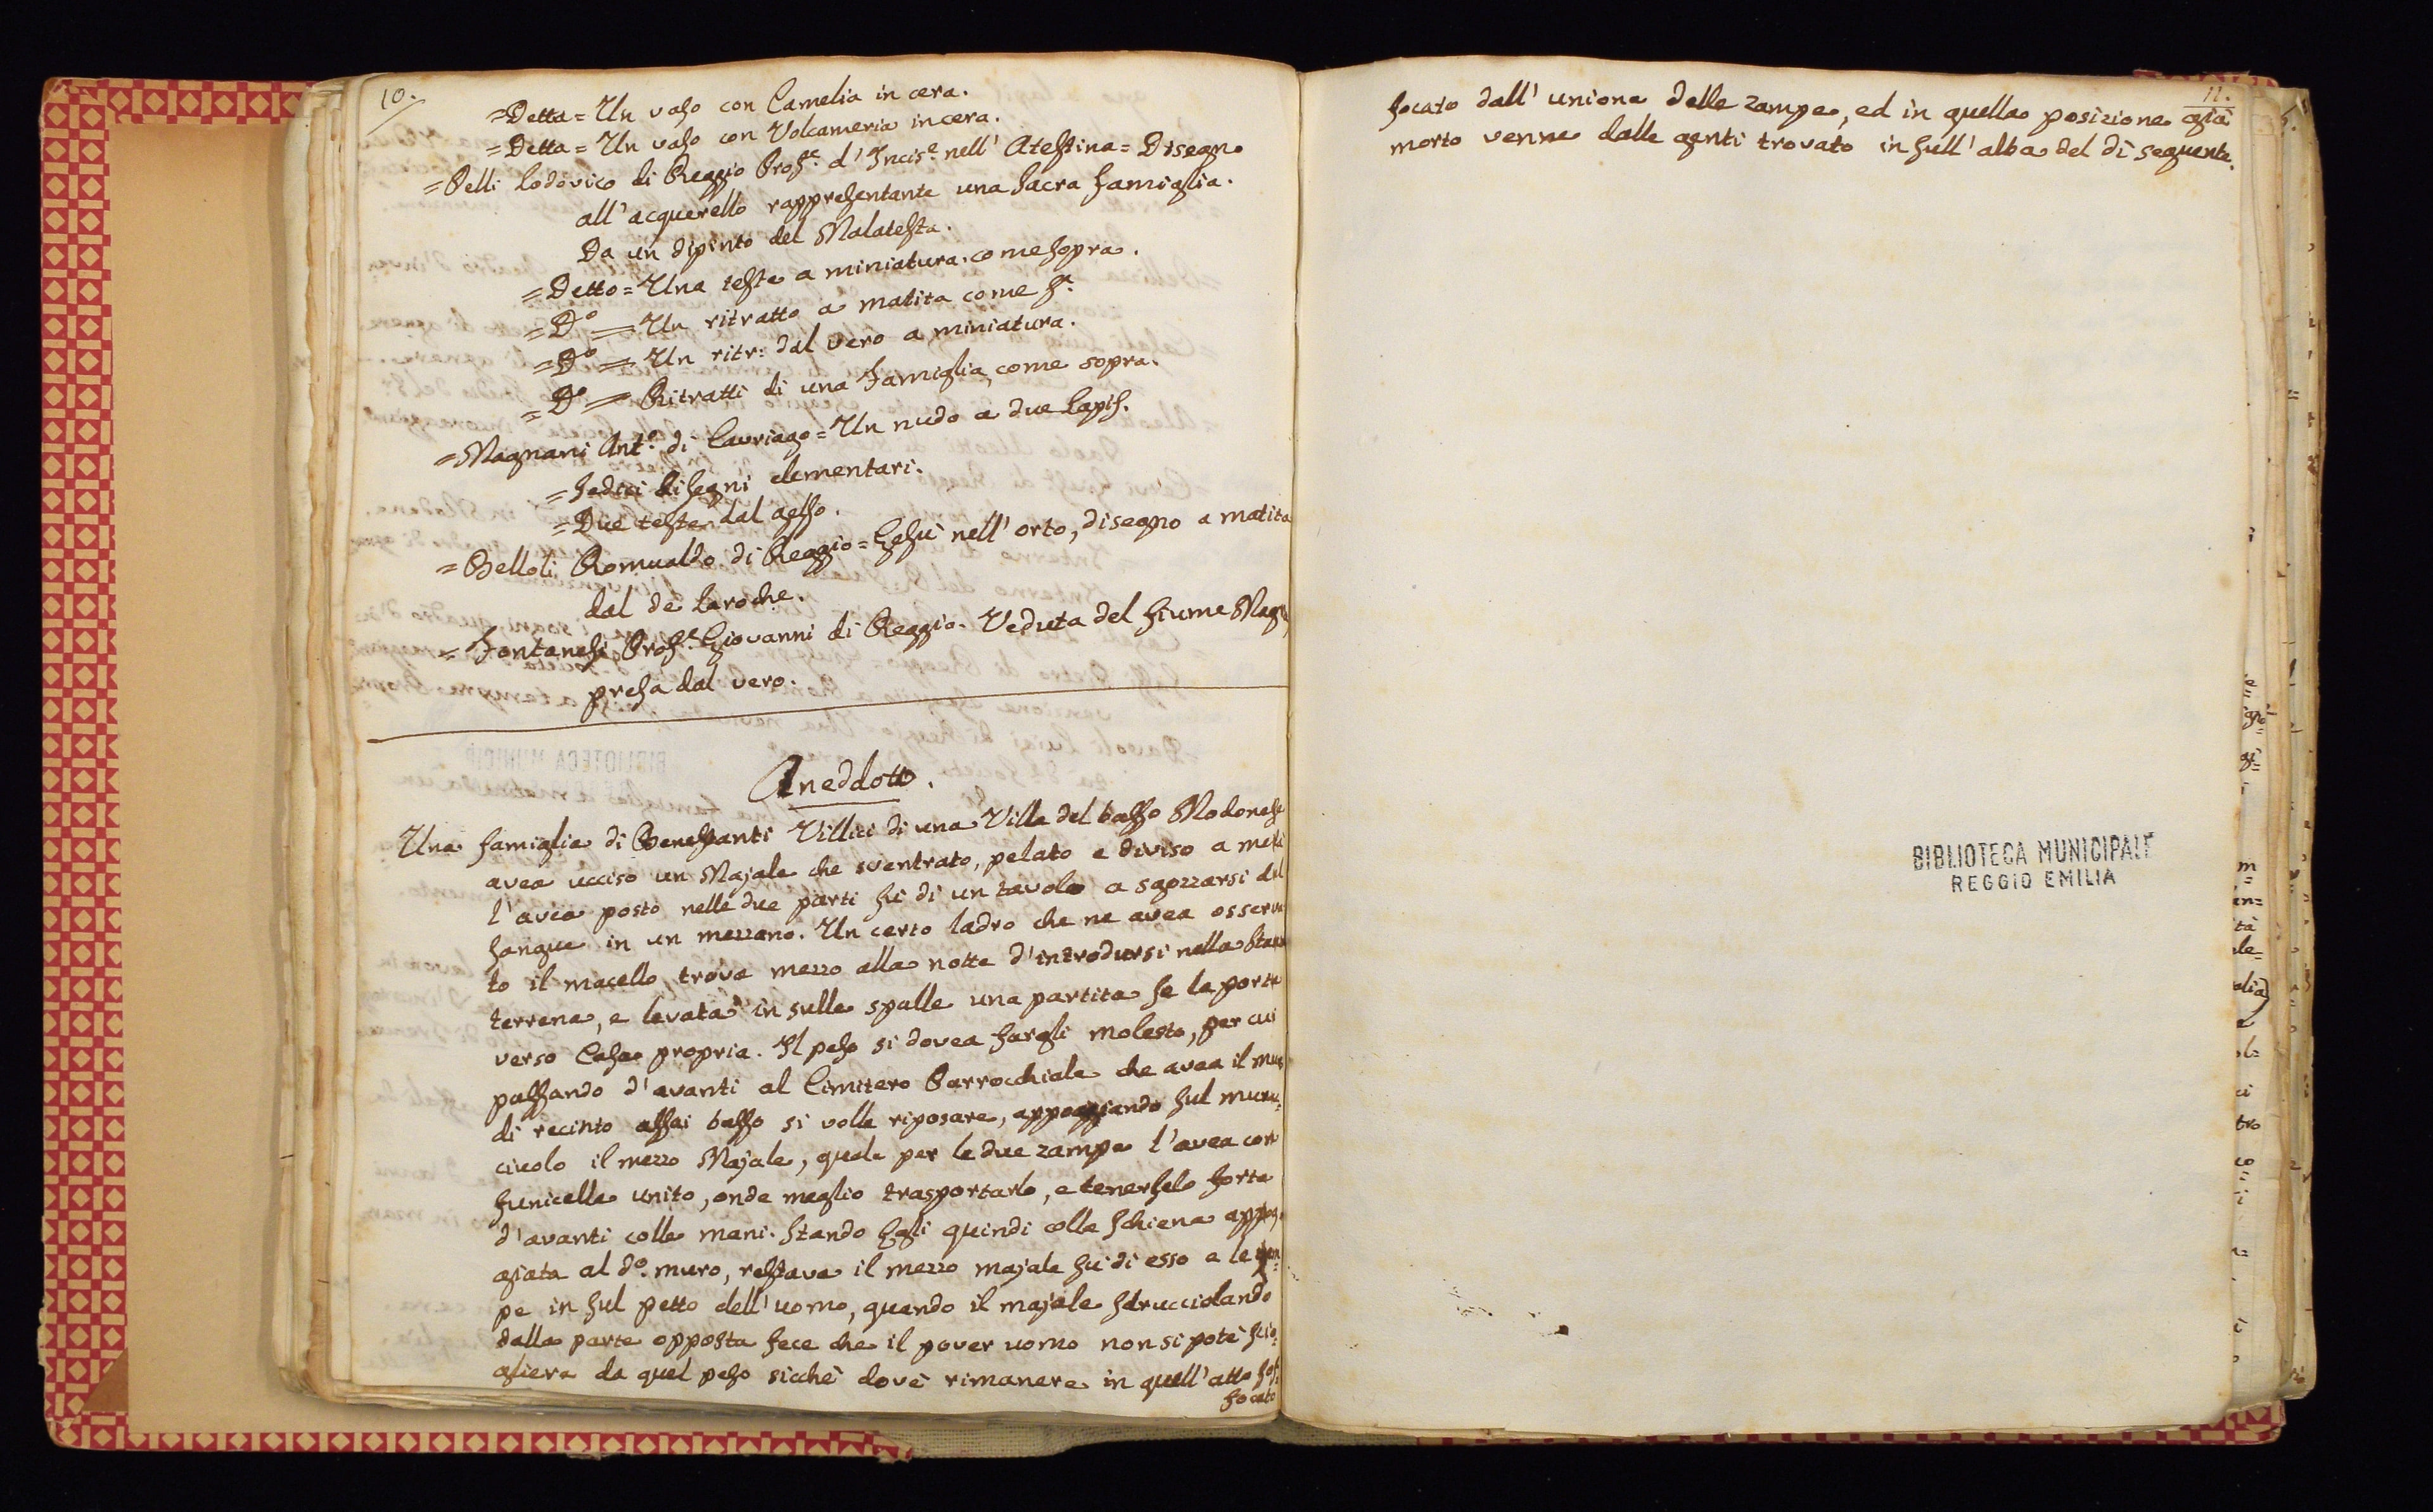 10.
=Detta= Un vaso con Camelia in cera.
=Detta= Un vaso con Volcameria in cera.
=Pelli Lodovico di Reggio Profe. d'Incise. nell'Atestina= Disegno
all'acquerello rappresentante una Sacra famiglia.
Da un dipinto del Malatesta.
=Detto= Una testa a miniatura. come sopra.
=Do= Un ritratto a matita come sa.
=Do= Un ritr: dal vero a miniatura.
=Do= Ritratti di una famiglia, come sopra.
=Magnani Anto. di Cavriago= Un nudo a due lapis.
=Sedici disegni elementari.
=Due teste dal gesso.
=Belloli Romualdo di Reggio= Gesù nell'orto, disegno a matita
dal de Laroche.
=Fontanesi Profe. Giovanni di Reggio. Veduta del fiume
presa dal vero.
Aneddoto.
Una famiglia di Benestanti Villici di una Villa del basso Modonese
avea ucciso un Majale che sventrato, pelato e diviso a metà
l'avea posto nelle due parti su di un tavolo a sgozzarsi del
sangue in un mezzano. Un certo ladro che ne avea osserva
to il macello, trova mezzo alla notte d'introdursi nella Stanza
terrena, e levata in sulle spalle una partita se la porta
verso Casa propria. Il peso si dovea fargli molesto, per cui
passando d'avanti al Cimitero Parrocchiale che avea il muro
di recinto assai basso si volle riposare, appoggiando sul mura=
ciuolo il mezzo Majale, quale per le due zampe l'avea con
funicella unito, onde meglio trasportarlo, e tenerselo forte
d'avanti colle mani. Stando Egli quindi colla schiena appog=
giata al do. muro, restava il mezzo majale su di esso e le zam=
pe in sul petto dell'uomo, quando il majale sdrucciolando
dalla parte opposta fece che il pover uomo non si potè scio=
gliere da quel peso sicchè dovè rimanere in quell'atto sof=
focato
11.
focato dall'unione delle zampe, ed in quella posizione già
morto venne dalle genti trovato in sull'alba del dì seguente.
BIBLIOTECA MUNICIPALE
REGGIO EMILIA